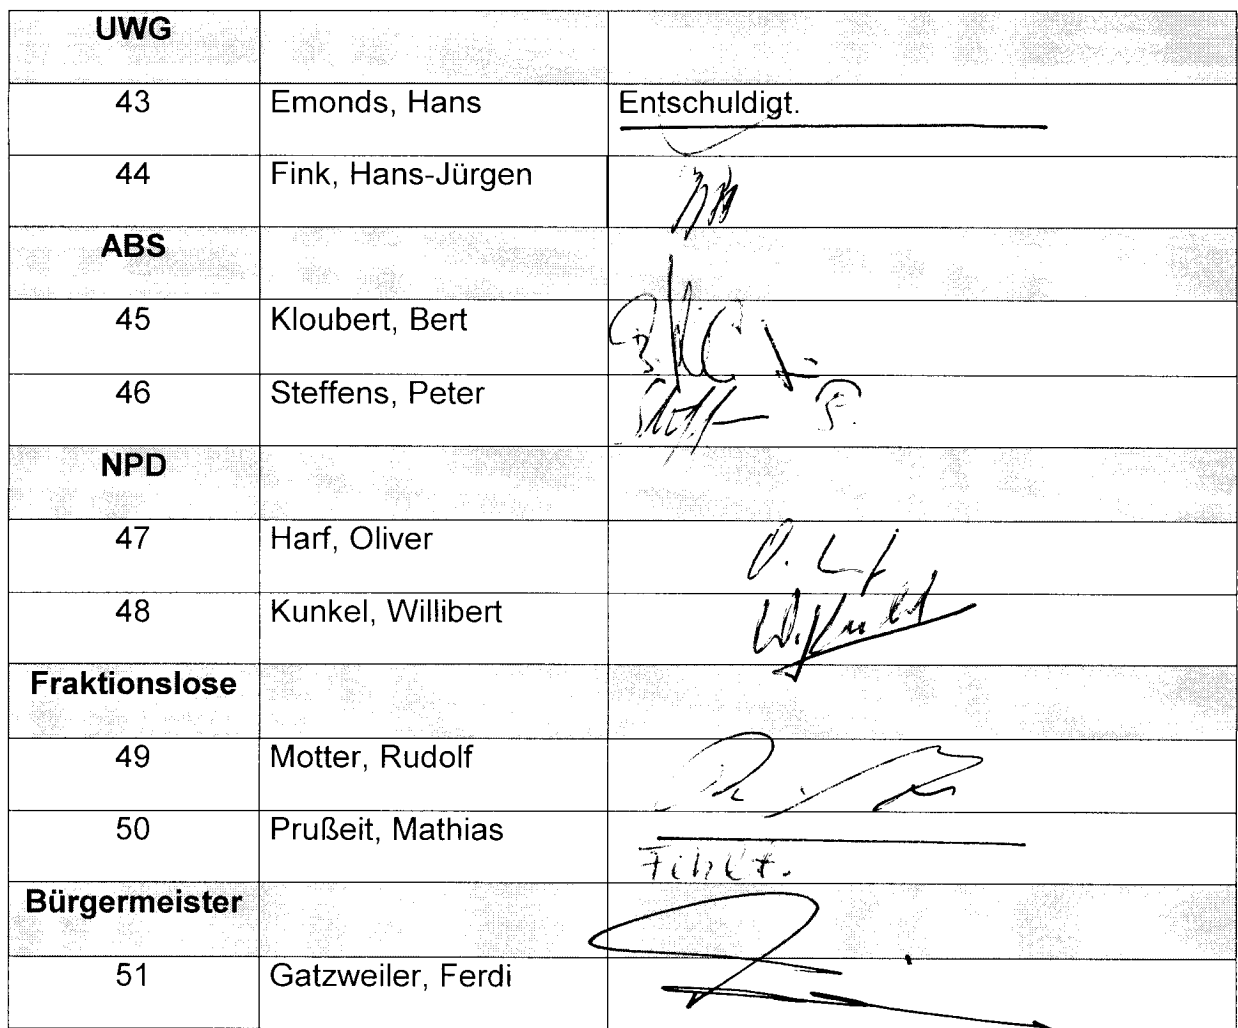 UWG
43 Emonds, Hans Entschuldigt.
44 Fink, Hans-Jürgen
ABS
45 Kloubert, Bert
46 Steffens, Peter
NPD
47 Harf, Oliver
48 Kunkel, Willibert
Fraktionslose
49 Motter, Rudolf
50 Prußeit, Mathias
Fehlt.
Bürgermeister
51 Gatzweiler, Ferdi